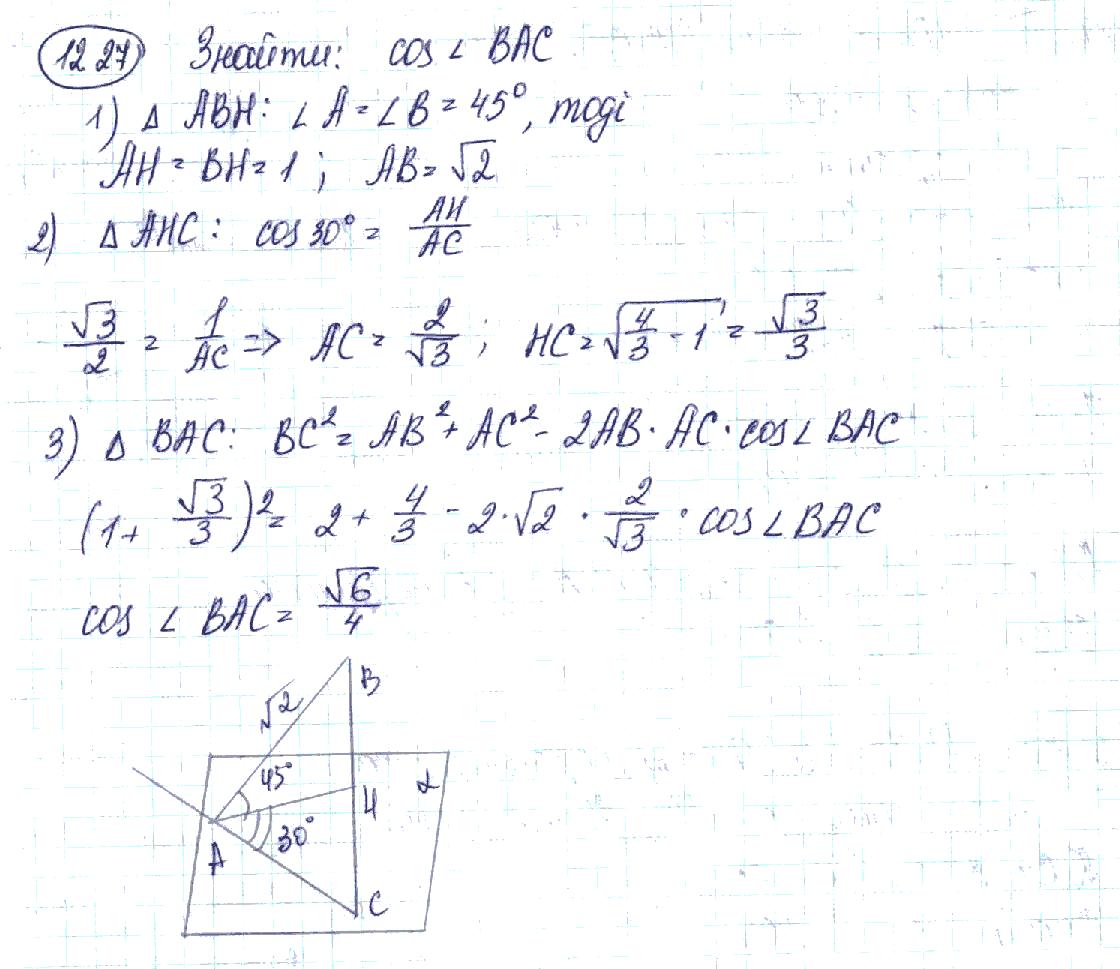 12 27 Знайти: cos ∠ BAC
1) Δ ABH: ∠ A = ∠ B = 45°, тоді
AH = BH = 1 ; AB = √2
2) Δ AHC: cos 30° = AH/AC
√3/2 = 1/AC => AC = 2/√3 ; HC = √(4/3 - 1) = √3/3
3) Δ BAC: BC² = AB² + AC² - 2AB · AC · cos ∠ BAC
(1 + √3/3)² = 2 + 4/3 - 2 · √2 · 2/√3 · cos ∠ BAC
cos ∠ BAC = √6/4
B
√2
45°
α
H
30°
A
C